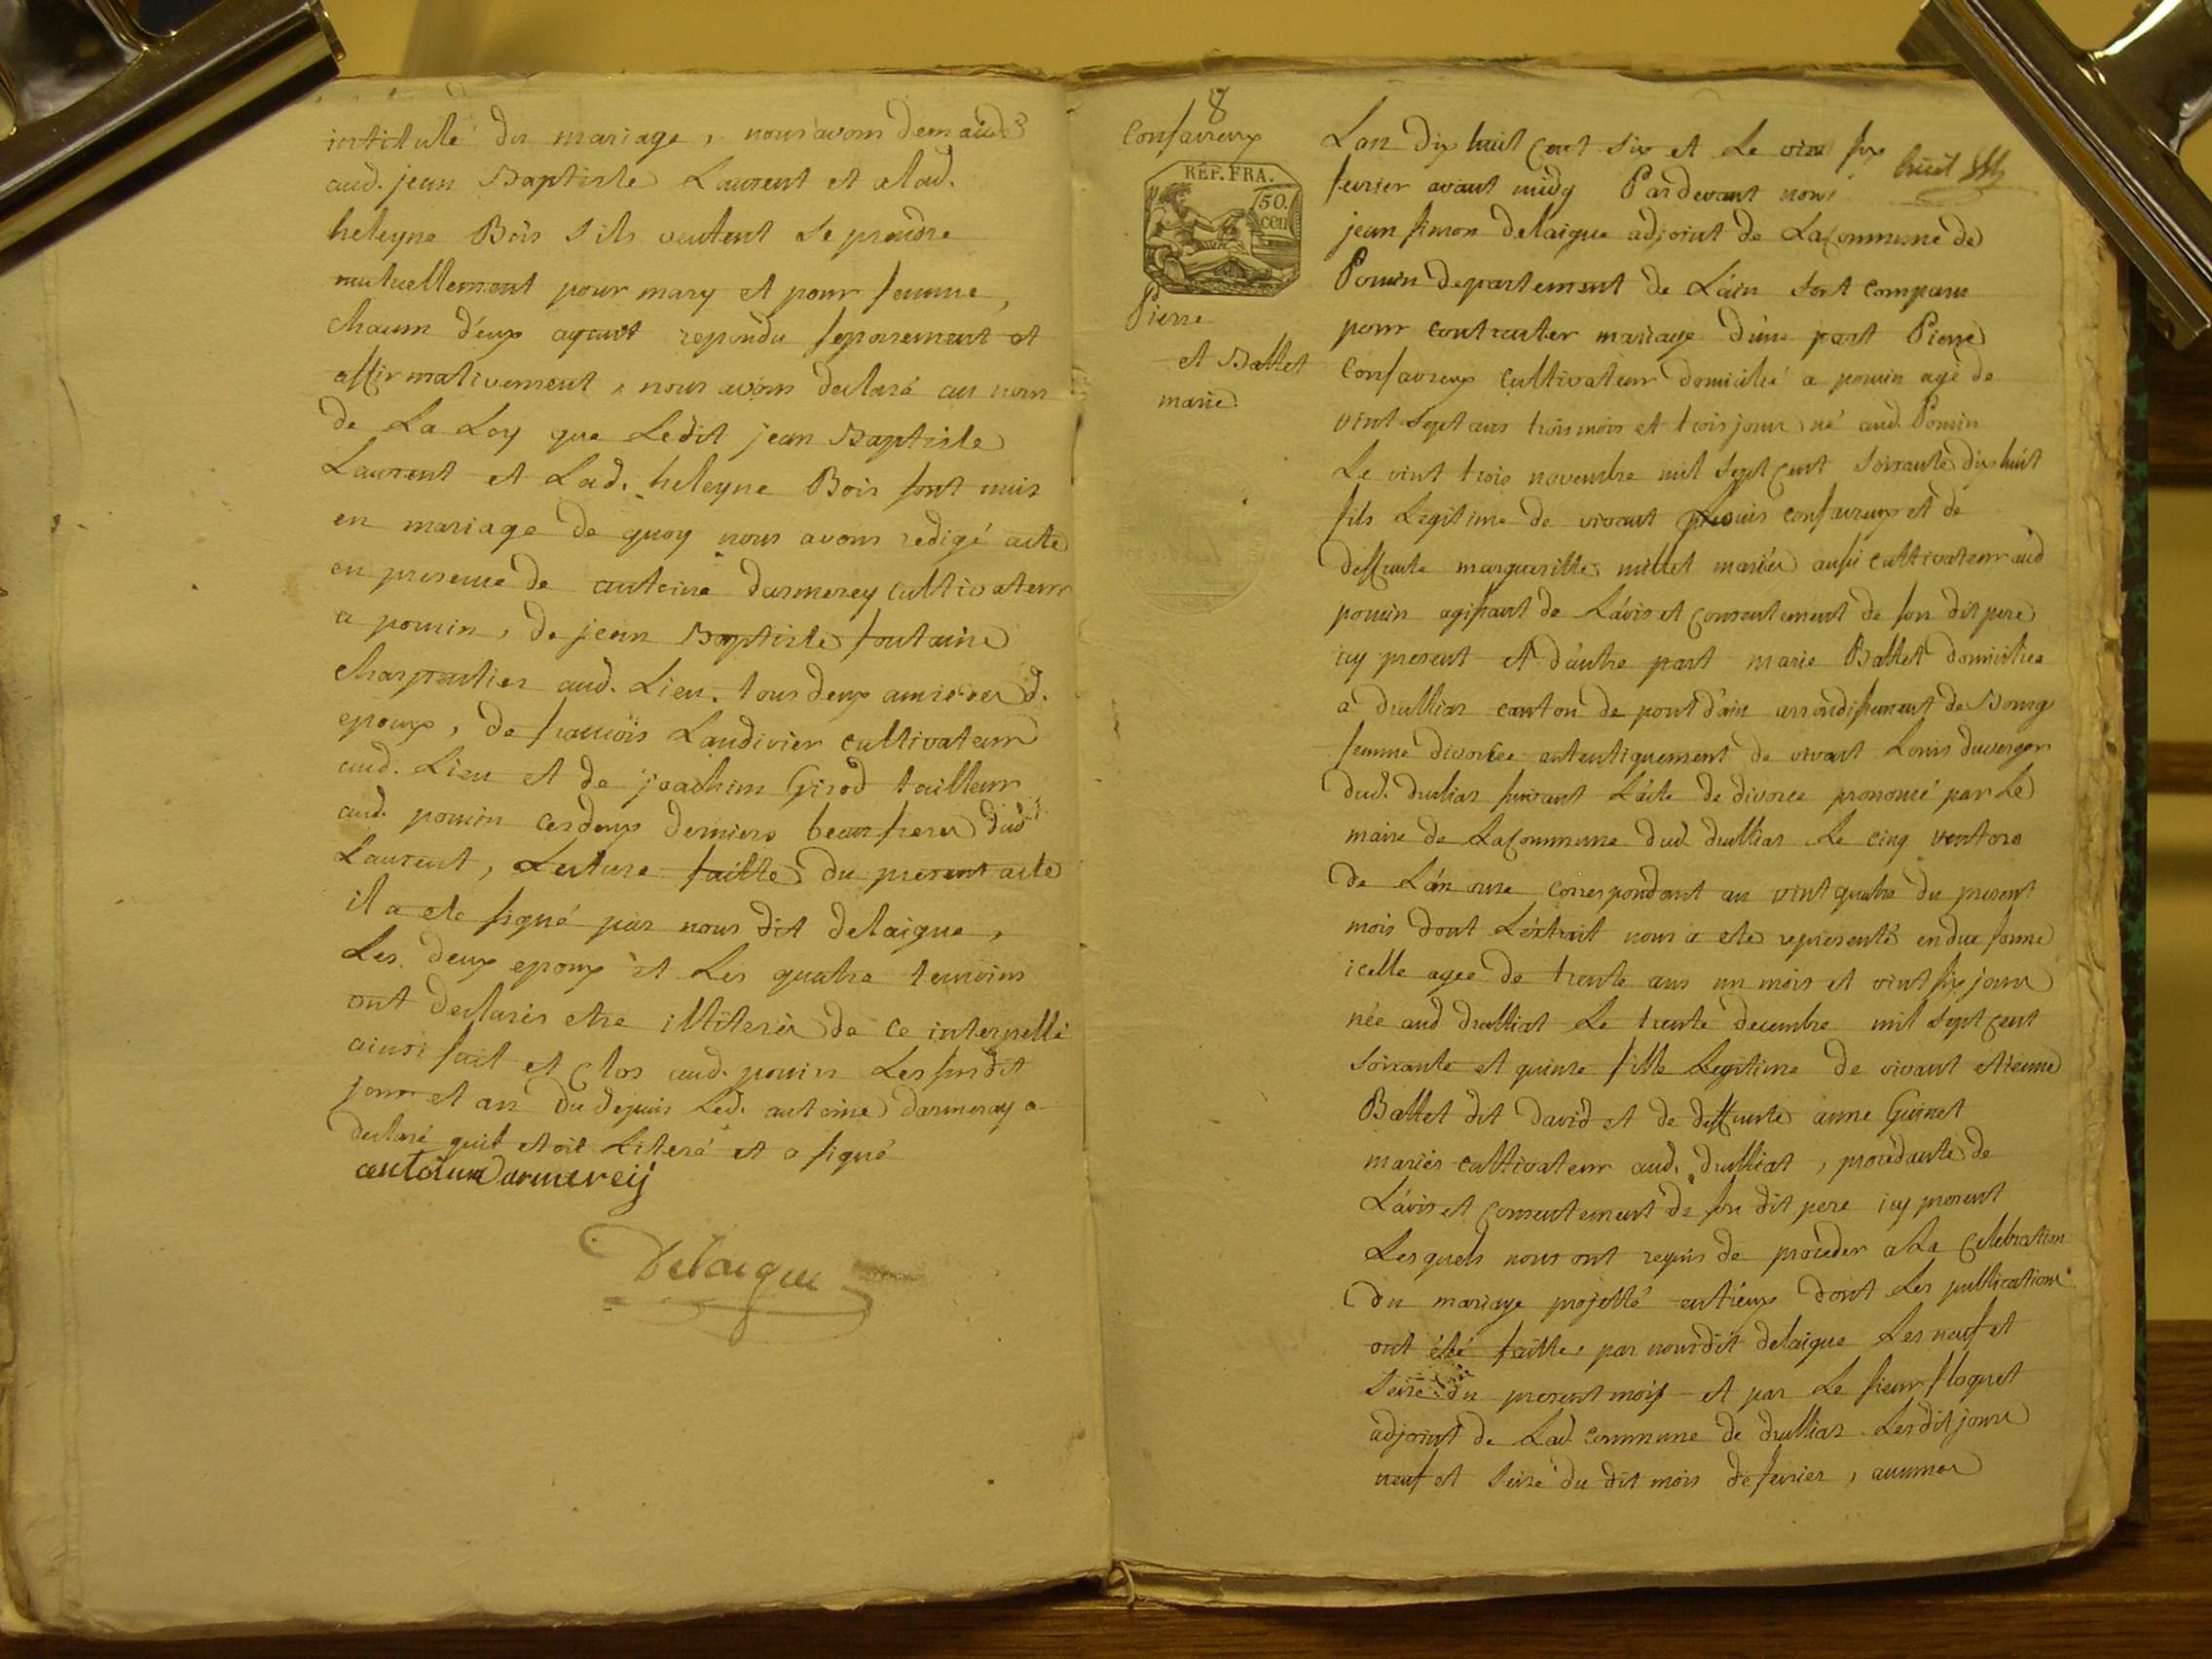 intitulé du mariage, nous avons demandé
aud. jean Baptiste Laurent et alad.
heleyne Bois s'ils veulent se prendre
mutuellement pour mary et pour femme,
chacun d'eux ayant repondu separement et
affirmativement, nous avons declaré au nom
de La Loy que Ledit jean Baptiste
Laurent et Lad. heleyne Bois sont unis
en mariage de quoy nous avons redigé acte
en presence de antoine darmerey cultivateur
a poncin, de jean Baptiste fontaine
charpentier aud. Lieu. tous deux amis des d.
epoux, de francois Laudivier cultivateur
aud. Lieu et de joachim Girod tailleur
aud. poncin ces deux derniers beau frere dud.
Laurent, Lecture faitte du present acte
il a ete signé par nous dit delaigue,
Les deux epoux et Les quatre temoins
ont declarés etre illiterés de ce interpellé
ainsi fait et clos aud. poncin Les susdit
jour et an du depuis Led. antoine darmeray a
declaré quil etoit Literé et a signé
antoine Darmereij
Delaigue
8
Confavreux
RÉP. FRA.
50. cen
Pierre
et Ballet
marie
huit
Lan dix huit cent six et Le vint six
fevrier avant midy Pardevant nous
jean simon delaigue adjoint de Lacommune de
Poncin departement de L'ain sont comparu
pour contracter mariage d'une part Pierre
Confavreux cultivateur domicilié a poncin agé de
vint sept ans trois mois et trois jours né aud. Poncin
Le vint trois novembre mil sept cent soixante dix huit
fils Legitime de vivant Louis confavreux et de
deffunte margueritte millet mariés aussi cultivateur aud
poncin agissant de L'avis et consentement de son dit pere
icy present et d'autre part marie Ballet domiciliee
a druillias canton de pont d'ain arrondissement de Bourg
femme divorcée autentiquement de vivant Louis duverger
dud. druilias suivant L'acte de divorce prononcé par Le
maire de Lacommune dud. druillias Le cinq ventose
de L'an onze correspondant au vint quatre du present
mois dont L'extrait nous a ete representé en due forme
icelle agee de trente ans un mois et vint six jours
née aud druilliat Le trente decembre mil sept cent
soixante et quinze fille Legitime de vivant etienne
Ballet dit david et de deffunte anne Guinet
mariés cultivateur aud. druilliat, procedante de
L'avis et consentement de son dit pere icy present
Lesquels nous ont requis de proceder a La Celebration
du mariage projetté entr'eux dont Les publications
ont été faittes par nousdit delaigue Les neuf et
seize du present mois et par Le sieur floquet
adjoint de Lad. commune de druillias Lesdit jours
neuf et seize du dit mois de fevrier, aucune